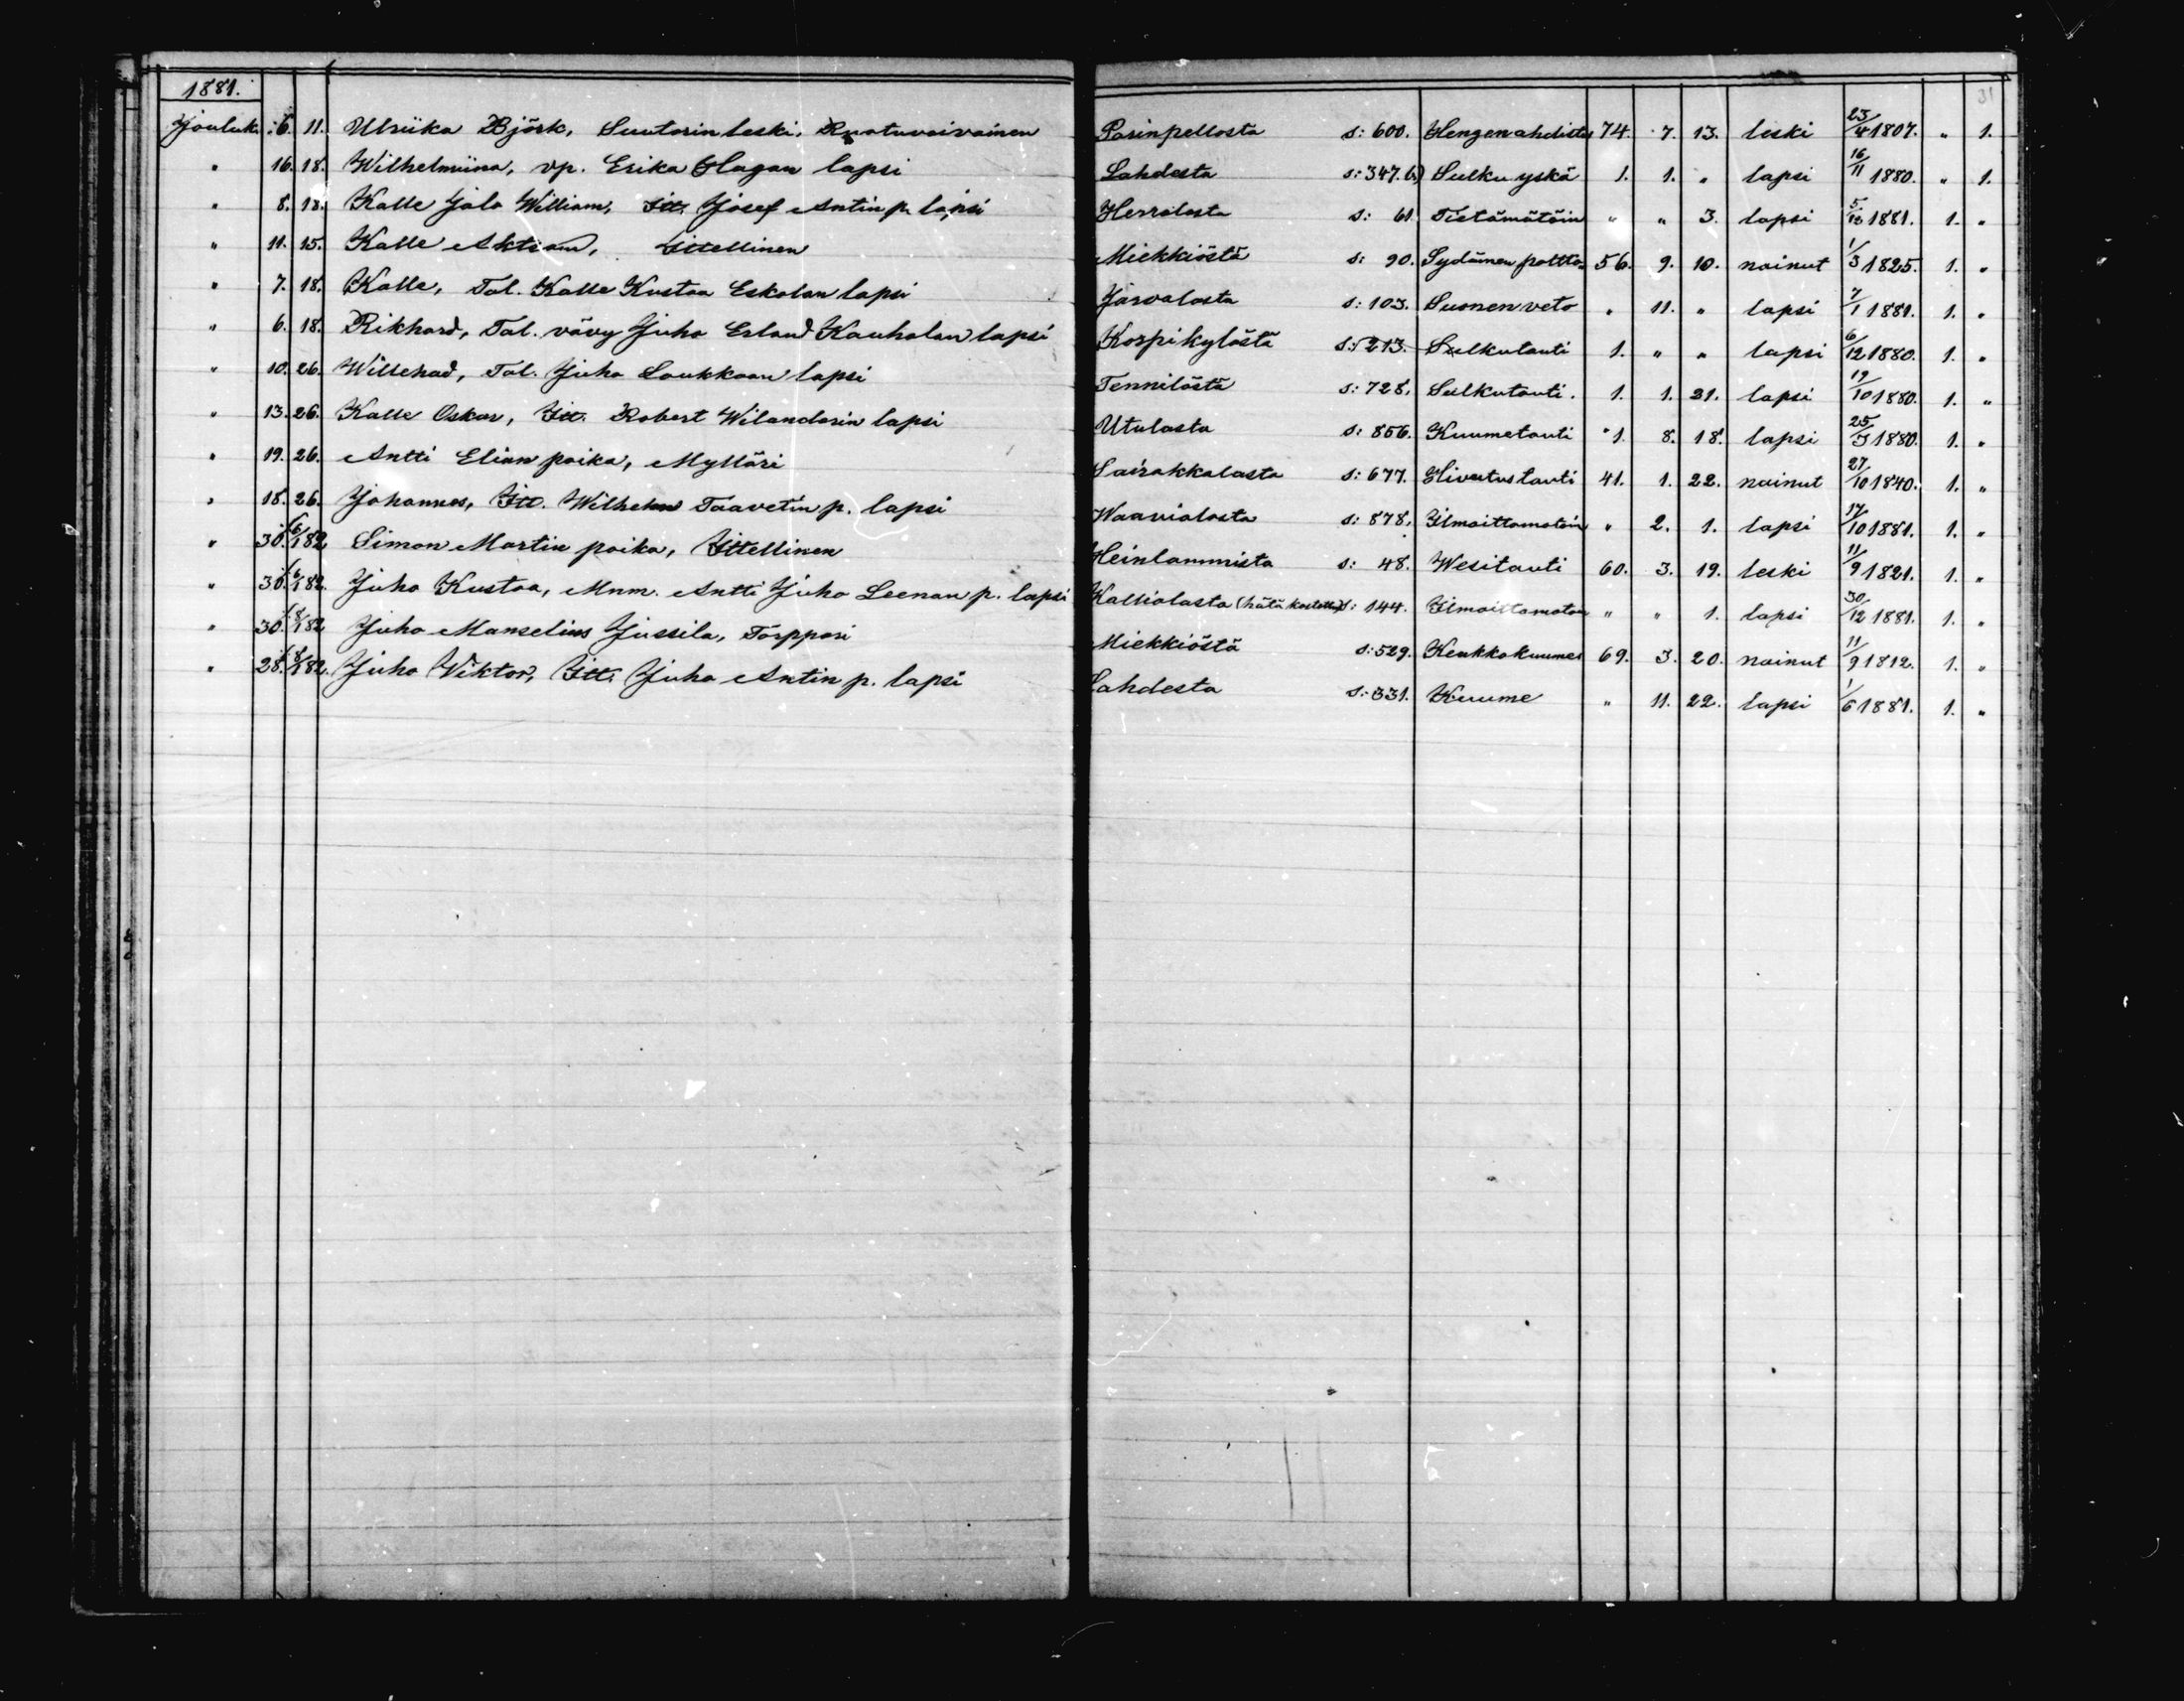 31
1881.
Jouluk. 6. 11. Ulriika Björk, Suutarin leski, Ruotuvaivainen Pasinpellosta s: 600. Hengenahdistus 74. 7. 13. leski 23/4 1807. " 1.
" 16. 18. Wilhelmiina, vp. Erika Hagan lapsi Lahdesta s: 347. b) Sulku yskä 1. 1. " lapsi 16/11 1880. " 1.
" 8. 13. Kalle Jalo William, Itt. Josef Antin p. lapsi Herralasta s: 61. Tietämätöin " " 3. lapsi 5/12 1881. 1. "
" 11. 15. Kalle Aktiam, Ittellinen Miekkiöstä s: 90. Sydämen poltto 56. 9. 10. nainut 1/3 1825. 1. "
" 7. 18. Kalle, Tal. Kalle Kustaa Eskolan lapsi Järvalasta s: 103. Suonen veto " 11. " lapsi 7/1 1881. 1. "
" 6. 18. Rikhard, Tal. vävy Juho Erland Kauhalan lapsi Korpikylästä s: 213. Sulkutauti 1. " " lapsi 6/12 1880. 1. "
" 10. 26. Willehad, Tal. Juho Laukkaan lapsi Tennilästä s: 728. Sulkutauti. 1. 1. 21. lapsi 19/10 1880. 1. "
" 13. 26. Kalle Oskar, Itt. Robert Wilanderin lapsi Utulasta s: 856. Kuumetauti 1. 8. 18. lapsi 25/3 1880. 1. "
" 19. 26. Antti Elian poika, Mylläri Sairakkalasta s: 677. Hivutustauti 41. 1. 22. nainut 27/10 1840. 1. "
" 18. 26. Johannes, Itt. Wilhelm Taavetin p. lapsi Waavialasta s: 878. Ilmoittamatoin " 2. 1. lapsi 17/10 1881. 1. "
" 30. 6/1 82 Simon Martin poika, Ittellinen Heinlammista s: 48. Wesitauti 60. 3. 19. leski 11/9 1821. 1. "
" 30. 6/1 82. Juho Kustaa, Mnm. Antti Juho Leenan p. lapsi Kalliolasta (hätä kastettu) s: 144. Ilmoittamatoin " " 1. lapsi 30/12 1881. 1. "
" 30. 8/1 82 Juho Manselius Jussila, Torppari Miekkiöstä s: 529. Keukkokuume 69. 3. 20. nainut 11/9 1812. 1. "
" 28. 8/1 82. Juho Viktor, Itt. Juho Antin p. lapsi Lahdesta s: 331. Kuume " 11. 22. lapsi 1/6 1881. 1. "